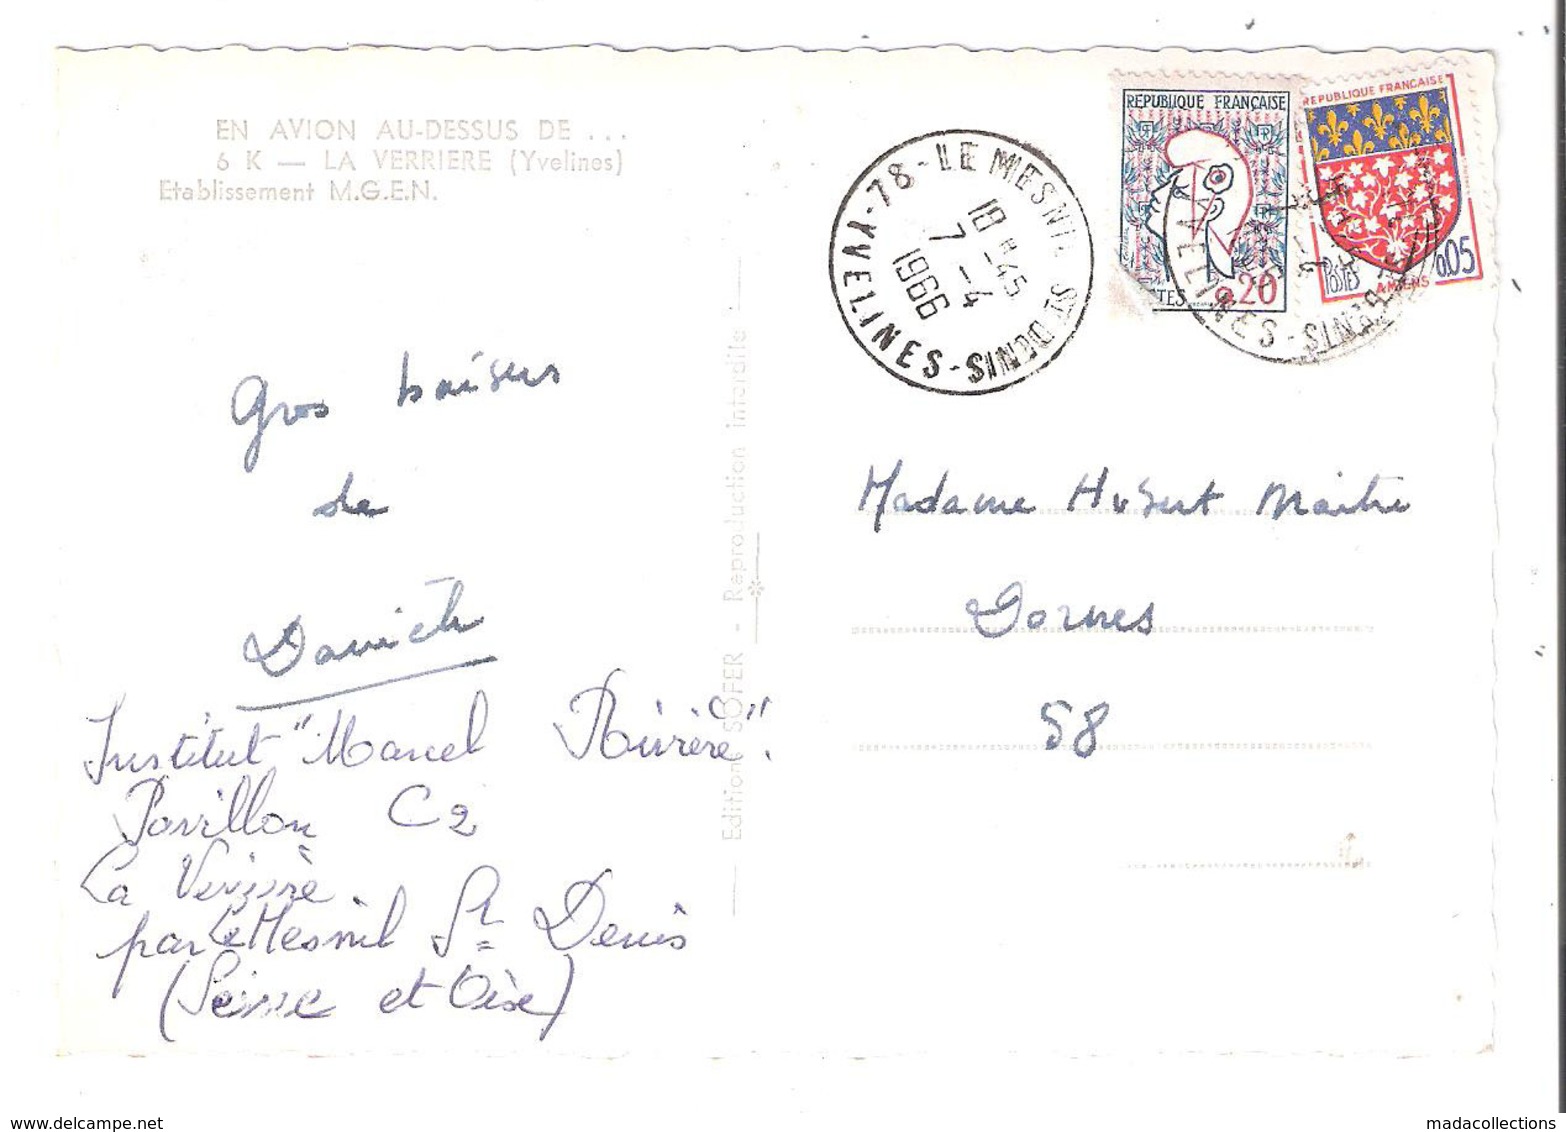 EN AVION AU-DESSUS DE ...
6 K — LA VERRIERE (Yvelines)
Etablissement M.G.E.N.
Gros baisers
de
Danièle
Institut "Marcel Rivière".
Pavillon C2
La Verrière.
par Le Mesnil St Denis
(Seine et Oise)
Editions SOFER - Reproduction interdite
78 - LE MESNIL ST DENIS - YVELINES -
18 H -45
7 -4
1966
REPUBLIQUE FRANÇAISE
0,20
REPUBLIQUE FRANÇAISE
POSTES
AMIENS
0,05
YVELINES -
Madame Hubert Maitre
Dornes
58
madacollections
www.delcampe.net